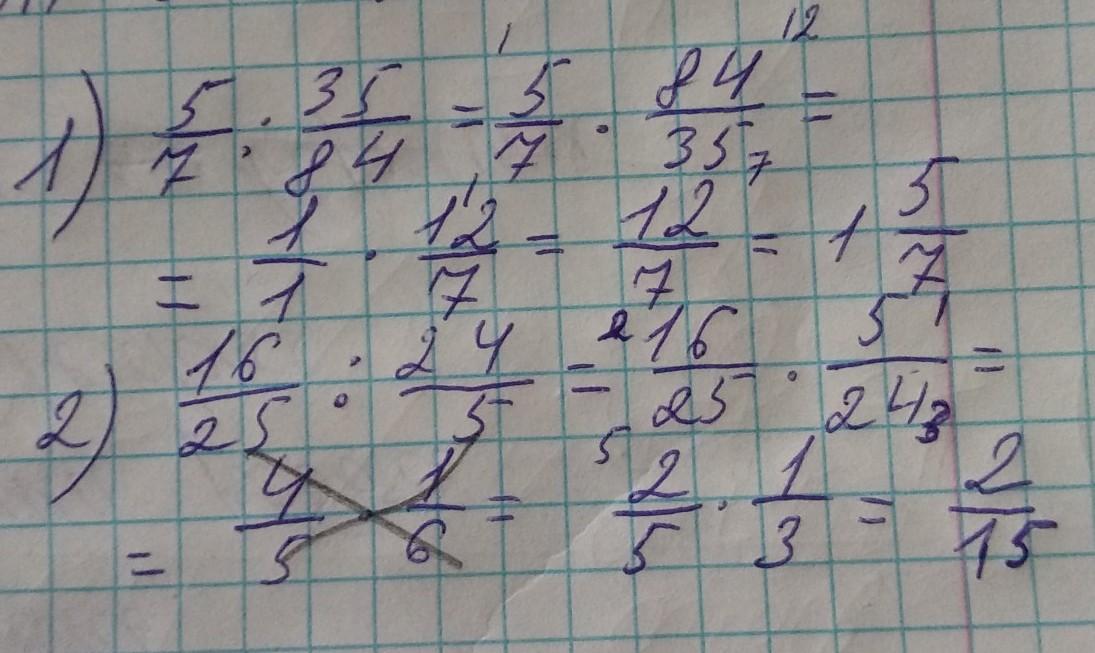 1) 5/7 : 35/84 = 5¹/7 · 84¹²/35₇ =
= 1/1 · 12/7 = 12/7 = 1 5/7
2) 16/25 : 24/5 = ²16/₅25 · 5¹/24₃ =
= 4/5 · 1/6 = 2/5 · 1/3 = 2/15